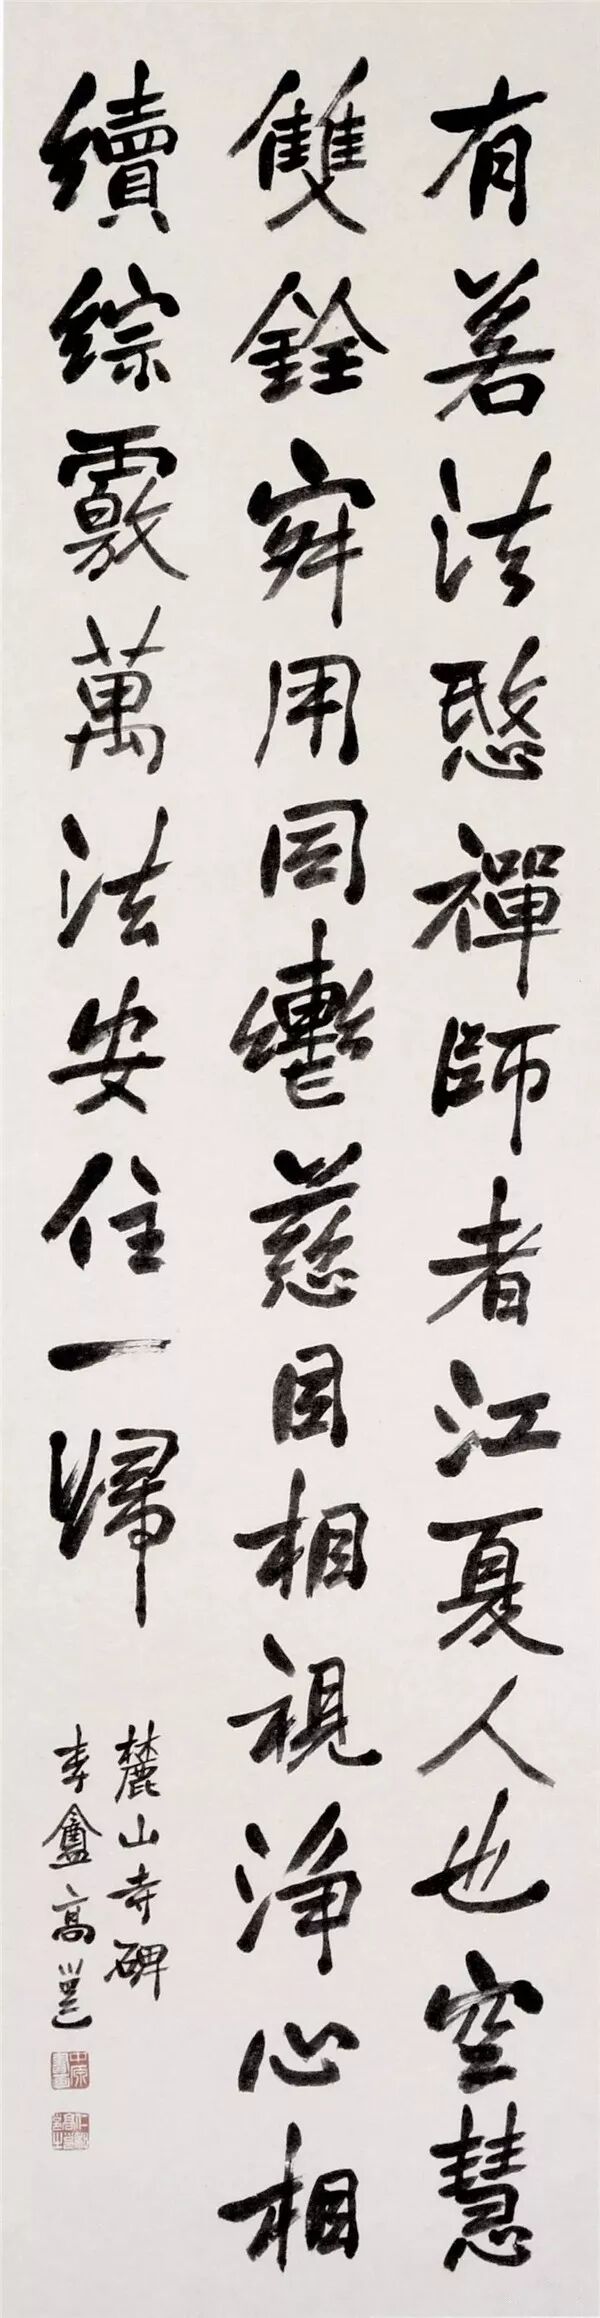 有若法愍禪師者江夏人也空慧
雙銓寂用同轡慈目相視淨心相
續綜覈萬法安住一歸
麓山寺碑
李盦高邕